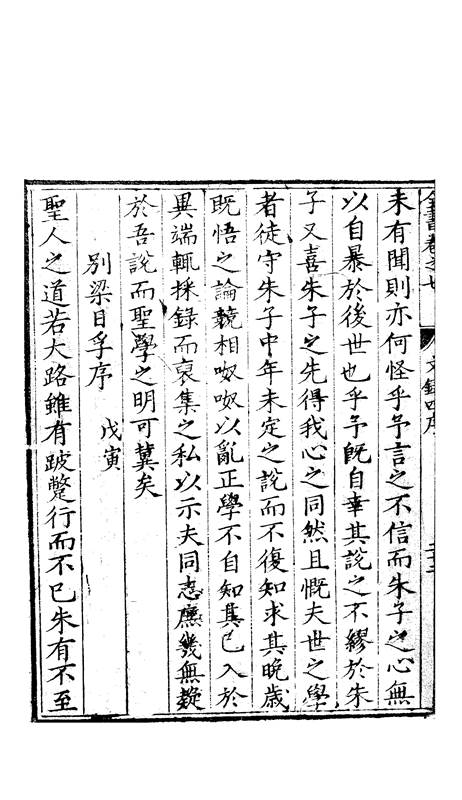 全書卷之七 文錄四序
未有聞則亦何怪乎予言之不信而朱子之心無
以自暴於後世也乎予既自幸其說之不繆於朱
子又喜朱子之先得我心之同然且慨夫世之學
者徒守朱子中年未定之說而不復知求其晚歲
既悟之論競相呶呶以亂正學不自知其已入於
異端輒採錄而裒集之私以示夫同志庶幾無疑
於吾說而聖學之明可冀矣
別梁日孚序 戊寅
聖人之道若大路雖有跛蹩行而不已朱有不至